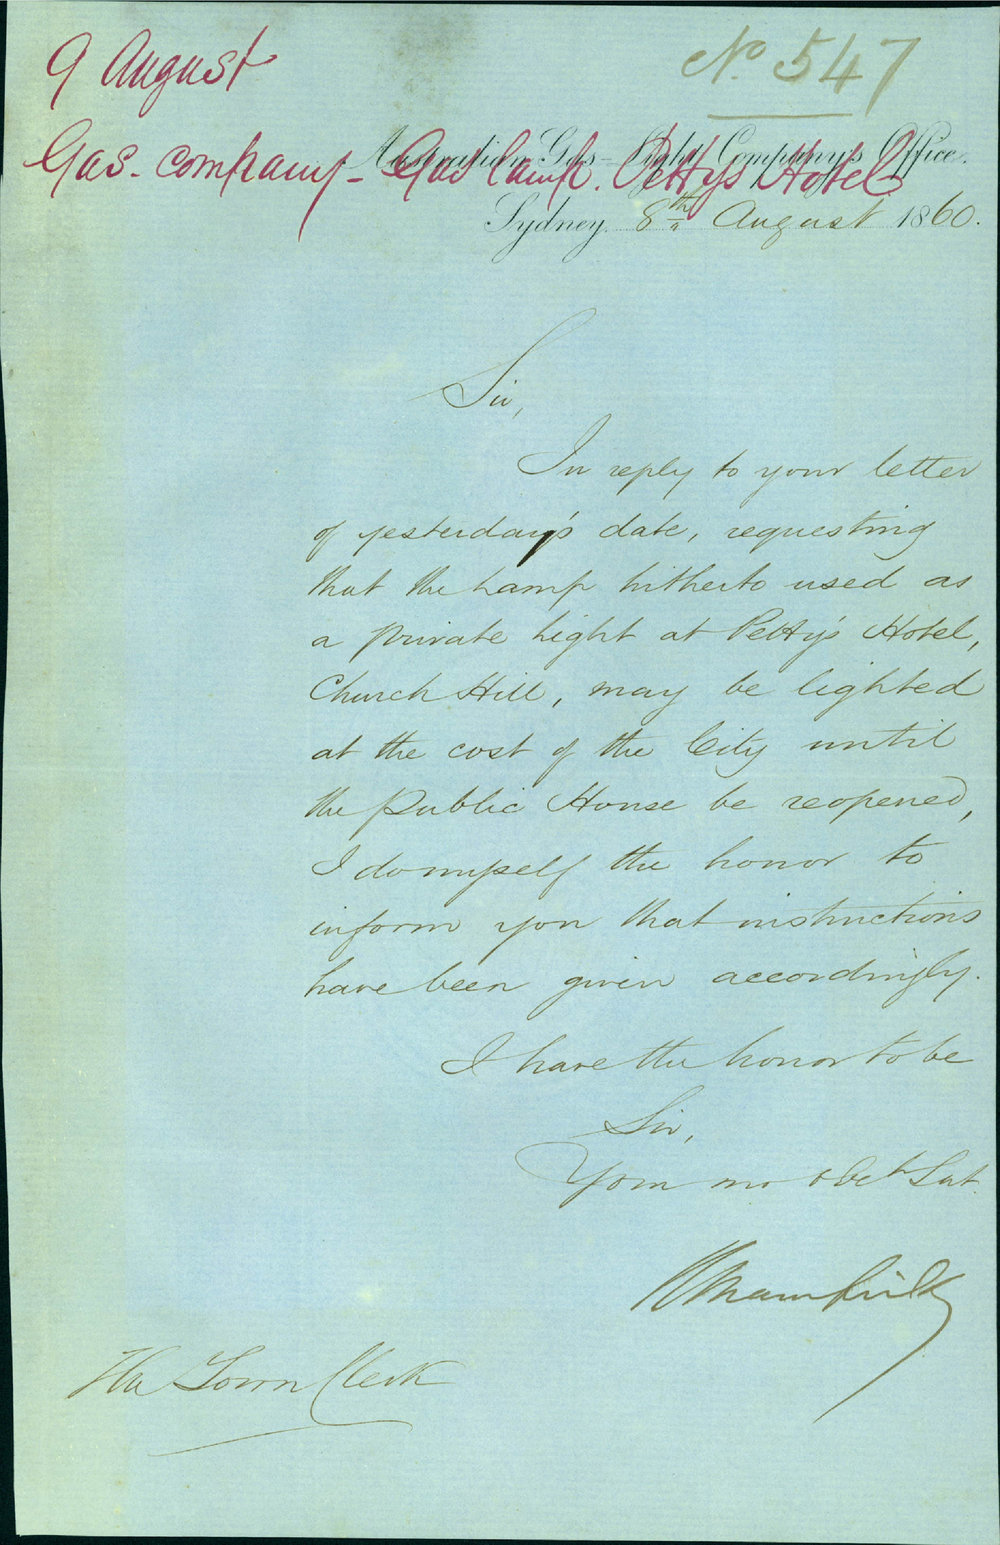 9 August
No. 547
Australian Gas-Light Company's Office.
Gas-company-Gas lamp. Pettys Hotel
Sydney. 8th August 1860.
Sir,
In reply to your letter
of yesterday's date, requesting
that the Lamp hitherto used as
a private light at Petty's Hotel,
Church Hill, may be lighted
at the cost of the City until
the Public House be reopened,
I do myself the honor to
inform you that instructions
have been given accordingly.
I have the honor to be
Sir,
Your mo obet Svt.
The Town Clerk